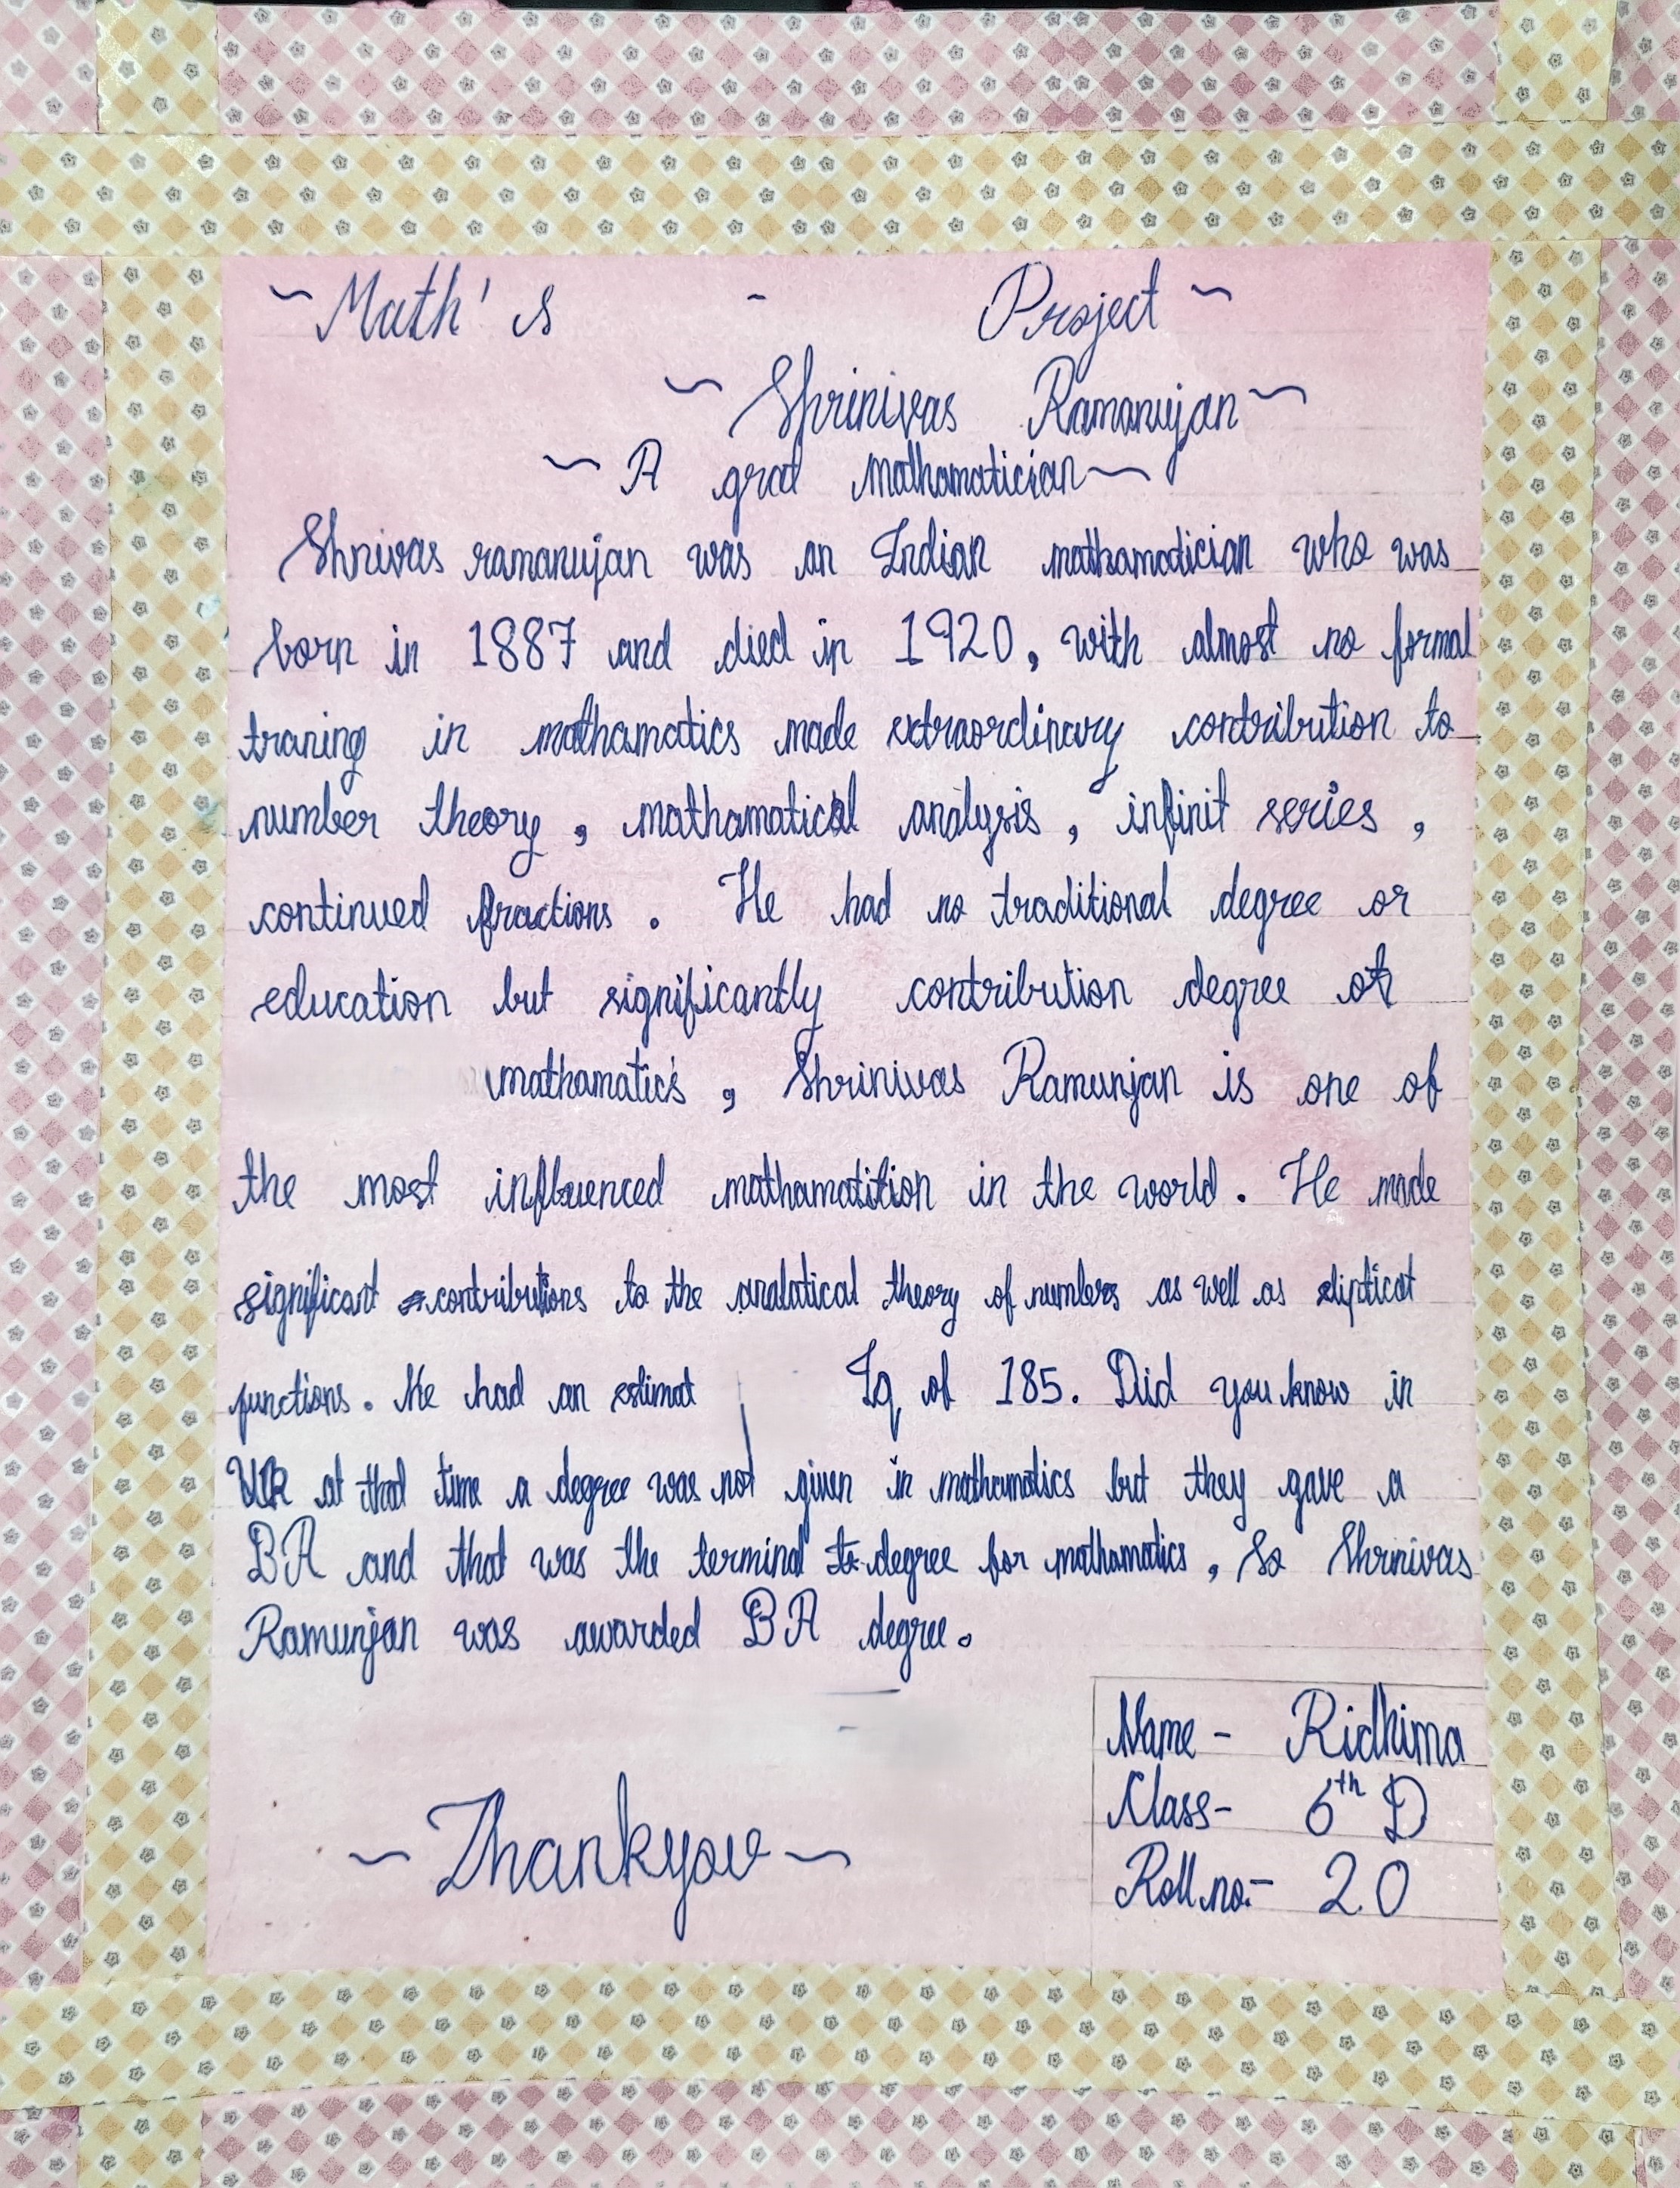 ~ Math's - Project ~
~ Shrinivas Ramanujan ~
~ A grat mathamatician ~
Shrivas ramanujan was an Indian mathamatician who was
born in 1887 and died in 1920, with almost no formal
traning in mathamatics made extraordinary contribution to
number theory, mathamatical analysis, infinit series,
continued fractions. He had no traditional degree or
education but significantly contribution degree of
mathamatics, Shrinivas Ramunjan is one of
the most influenced mathamatition in the world. He made
significant contributions to the analatical theory of numbers as well as eliptical
functions. He had an estimat Iq of 185. Did you know in
UK at that time a degree was not given in mathamatics but they gave a
BA and that was the terminal degree for mathamatics, So Shrinivas
Ramunjan was awarded BA degree.
Name - Ridhima
Class - 6th D
Roll no. - 20
~ Thankyou ~